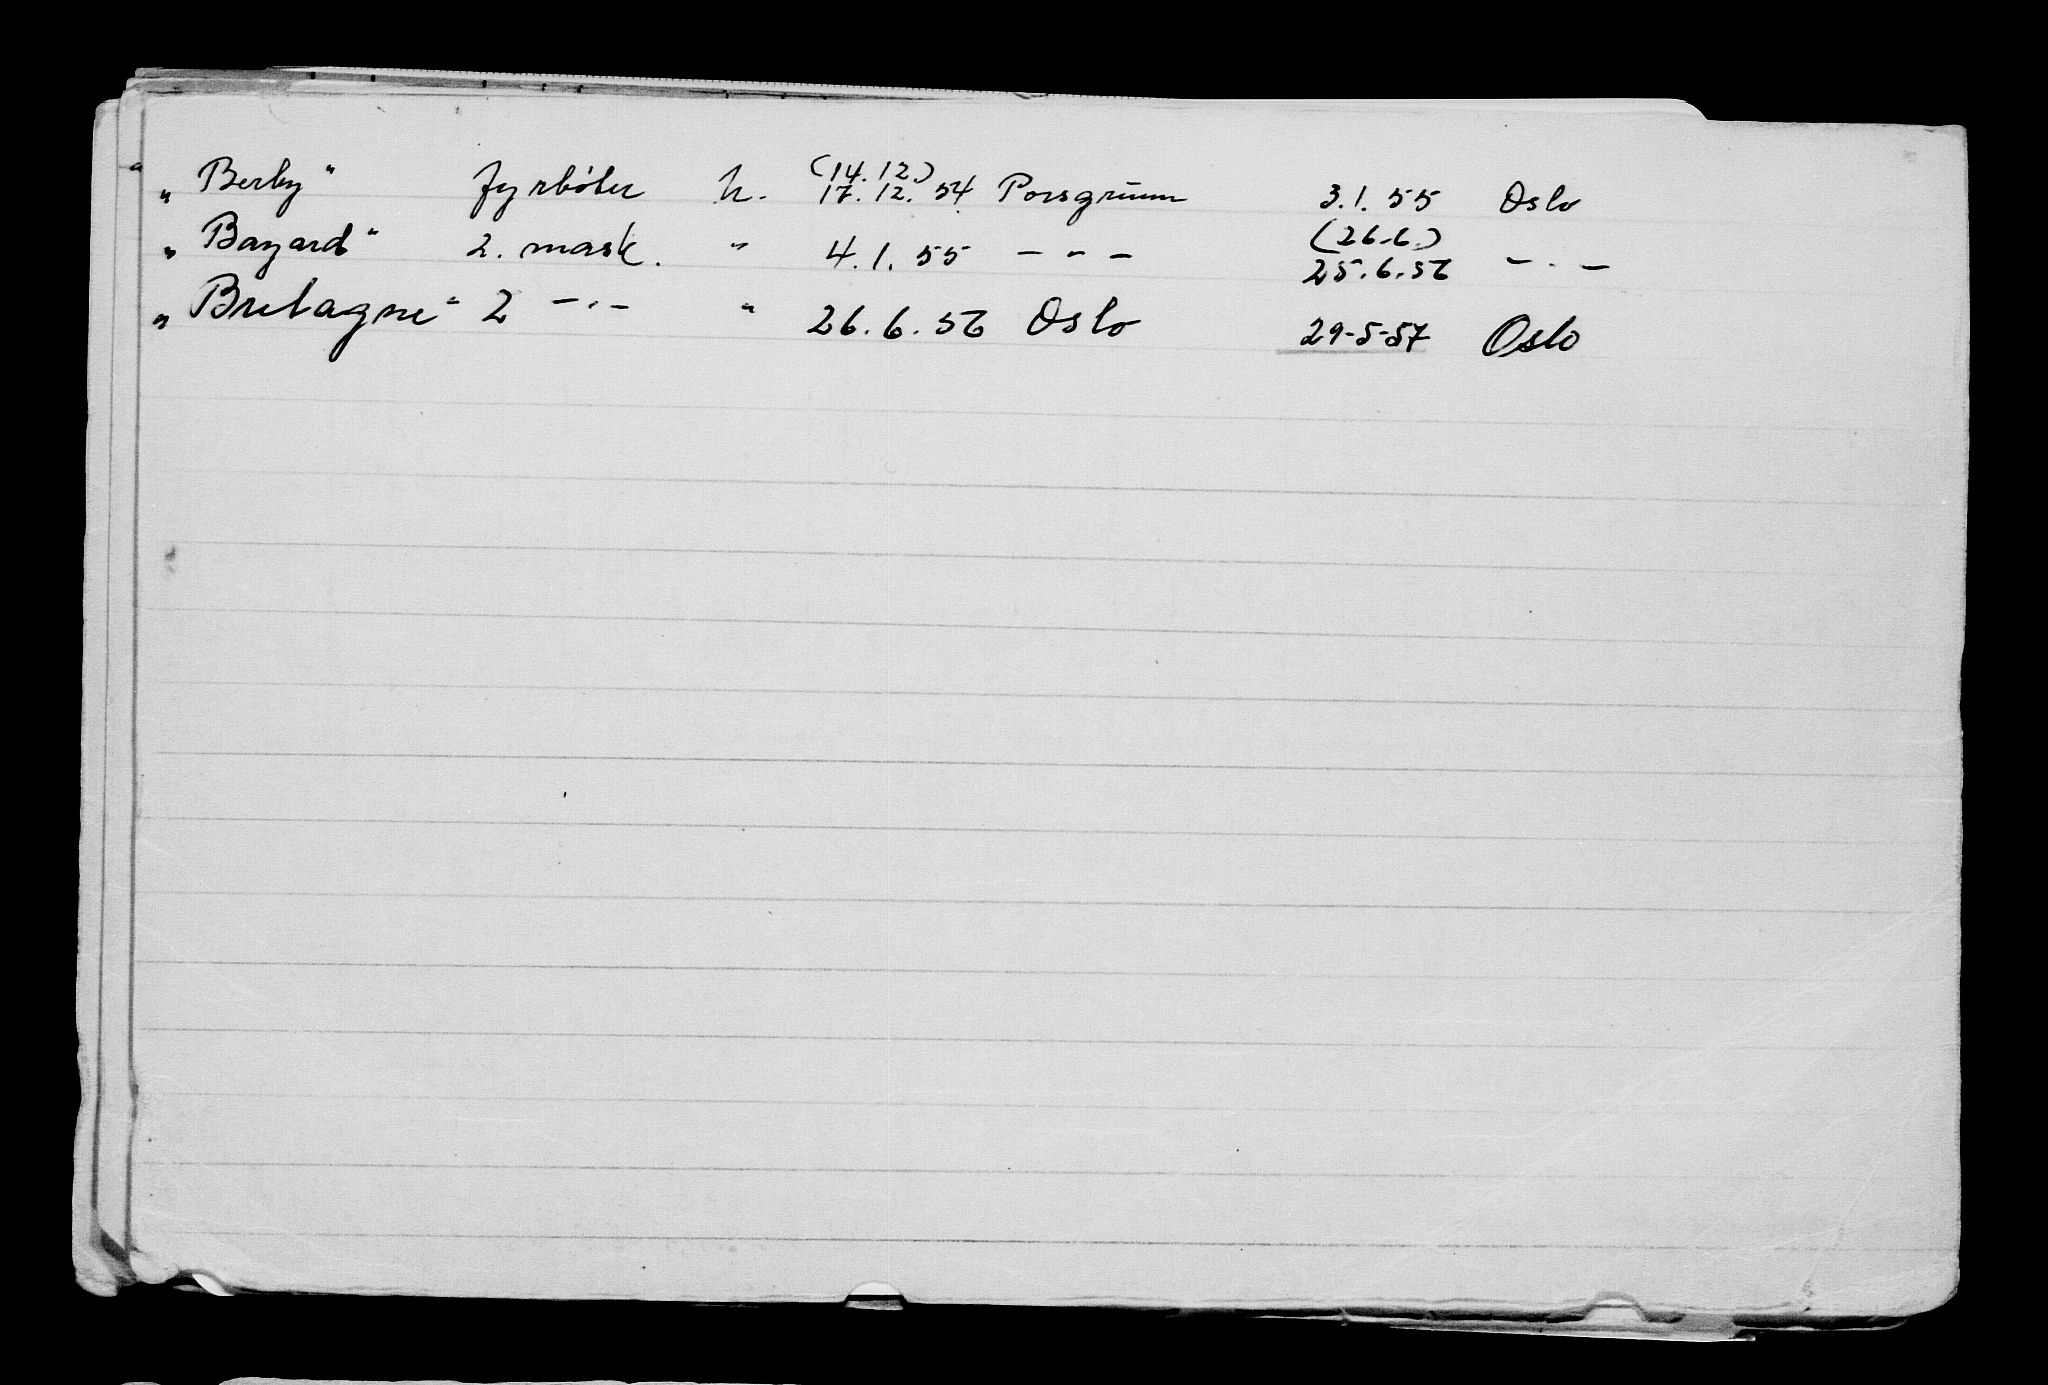 „ Berby " fyrbøter h. (14.12.) 17.12.54 Porsgrunn 3.1.55 Oslo
„ Bayard " 2. mask. " 4.1.55 - - - (26.6.) 25.6.56 - . -
„ Bretagne " 2 - . - " 26.6.56 Oslo 29-5-57 Oslo